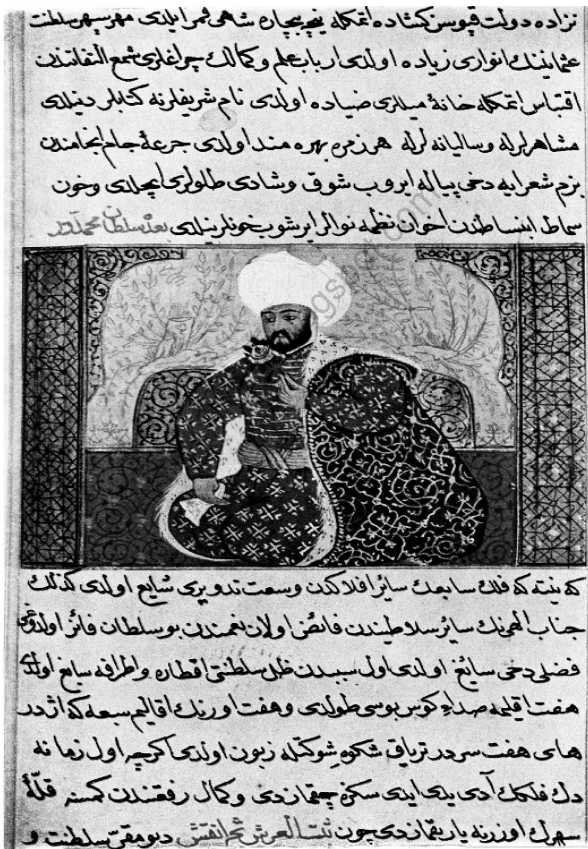 نزاده دولت قپوسن كشاده اتمكله نیجه بیچاره شاهی قمر ایلدی مهر سپهر سلطنت
عثمانینك انواری زیاده اولدی ارباب علم وكمالك چراغلری شمع التفاتندن
اقتباس اتمكله خانهٔ میللری ضیاده اولدی نام شریفلرنه كتابلر دینلدی
مشاهرلرله وسالیانه لرله هر زمره بهره مند اولدی جرعهٔ جام انجامندن
بزم شعرایه دخی پیاله ایروب شوق وشادی طلولری ایچلدی وخون
سماط انبساطندن اخوان نظمه نوالر ایرشوب خونلر ینلدی بعده سلطان محمد
كه نیته كه فلك سابعك سائر افلاكدن وسعت تدویری شایع اولدی كذلك
جناب الهینك سائر سلاطیندن فائض اولان نعمندن بو سلطان فائز اولدوغی
فضلی دخی سایغ اولدی اول سببدن ظل سلطنتی اقطاره واطرافه سابغ اولدی
هفت اقلیمه صداء كوس بوسی طولدی وهفت اورنك اقالیم سبعه كه اژدر
های هفت سردر تریاق شكوه شوكتله زبون اولدی اكرچه اول زمانه
دك فلكك آدی یدی ایدی سكزه چقمازدی وكمال رفعتندن كمسنه قلّهٔ
سپهرك اوزرنه یارتقمازدی چون ثبت العرش ثم انقش دیو مقرّ سلطنت و